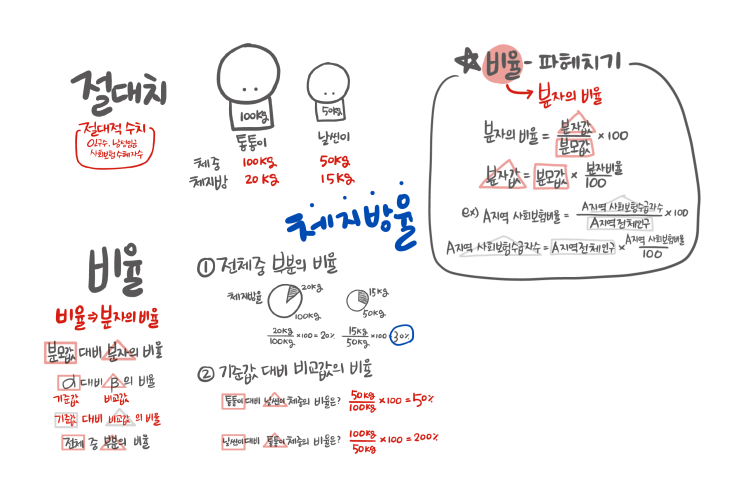 절대치
절대적 수치
인구수, 남성임금
사회보험수혜자수
100kg
50kg
통통이
날씬이
체중 100kg 50kg
체지방 20kg 15kg
체지방율
☆ 비율 - 파헤치기
→ 분자의 비율
분자의 비율 = 분자값/분모값 × 100
분자값 = 분모값 × 분자비율/100
ex) A지역 사회보험비율 = A지역 사회보험수급자수/A지역 전체인구 × 100
A지역 사회보험수급자수 = A지역 전체인구 × A지역 사회보험비율/100
비율
비율 ⇒ 분자의 비율
분모값 대비 분자의 비율
α 대비 β의 비율
기준값 비교값
기준값 대비 비교값 의 비율
전체 중 부분의 비율
① 전체 중 부분의 비율
체지방율
20kg
100kg
15kg
50kg
20kg/100kg × 100 = 20%
15kg/50kg × 100 = 30%
② 기준값 대비 비교값의 비율
통통이 대비 날씬이 체중의 비율은? 50kg/100kg × 100 = 50%
날씬이 대비 통통이 체중의 비율은? 100kg/50kg × 100 = 200%